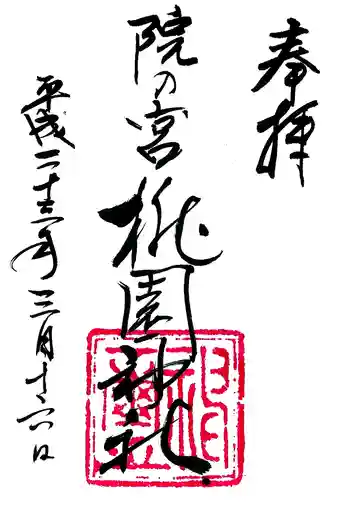 奉拝
院の宮
桃園神社
平成二十三年三月十六日